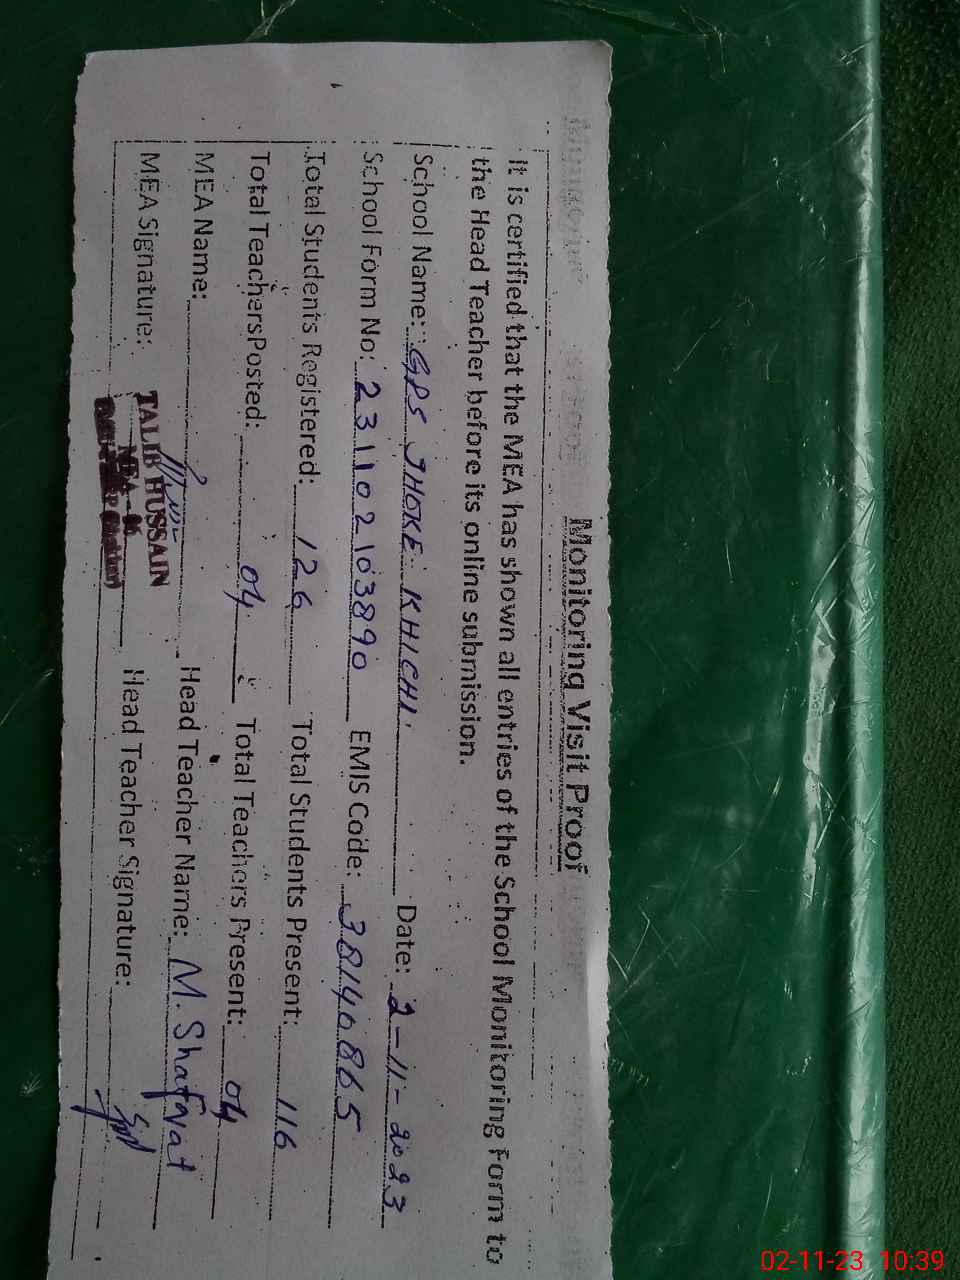 Monitoring Visit Proof
It is certified that the MEA has shown all entries of the School Monitoring Form to
the Head Teacher before its online submission.
School Name: GPS JHOKE KHICHI. Date: 2-11-2023
School Form No: 231102103890 EMIS Code: 38140865
Total Students Registered: 126 Total Students Present: 116
Total Teachers Posted: 04 Total Teachers Present: 04
MEA Name: Head Teacher Name: M. Shafqat
MEA Signature: TALIB HUSSAIN Head Teacher Signature:
MEA
02-11-23 10:39